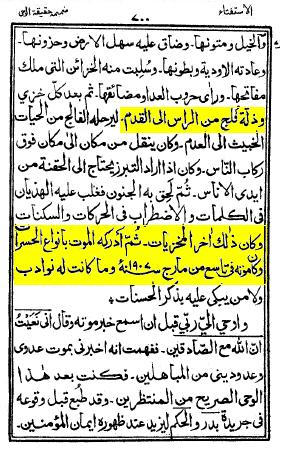 الاستفتاء ۷۰۰ ضميمه حقيقة الوحى
والخيل ومتونها۔ وضاق عليه سهل الارض وحزونها۔
وعادته الاودية وبطونها۔ وسُلبت منه الخزائن التى ملك
مفاتحها۔ وراى حروب العدا ومضائقها۔ ثم بعد كل خزى
وذلّة فُلِج من الراس الى القدم۔ ليرحله الفالج من الحيات
الخبيث الى العدم۔ وكان ينقل من مكان الى مكان فوق
ركاب النّاس۔ وكان اذا اراد التبرز يحتاج الى الحقنة من
ايدى الاناس۔ ثم لحق به الجنون فغلب عليه الهذيان
فى الكلمات والاضطراب فى الحركات والسكنات
وكان ذلك اٰخر المخزيات۔ ثم ادركه الموت بانواع الحسرات
وكان موته فى تاسع من مارچ ۱۹۰۷ء وما كانت له نوادب
ولا من يبكى عليه بذكر الحسنات۔
واوحى الىّ ربّى قبل ان اسمع خبر موته وقال انى نَعَيْتُ
انّ اللّٰه مع الصّادقين۔ ففهمت انه اخبرنى بموت عدوى
وعدوّ دينى من المباهلين۔ فكنت بعد هٰذا
الوحى الصريح من المنتظرين۔ وقد طُبع قبل وقوعه
فى جريدة بدر والحكم ليزيد عند ظهوره ايمان المؤمنين۔